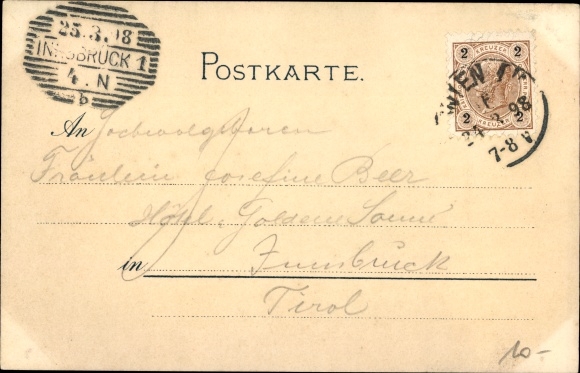 25.3.98
INNSBRUCK 1
4. N
b
POSTKARTE.
2 KREUZER 2
2 KREUZER 2
WIEN
24 3 98
7-8 V
An Hochwolgeboren
Fräulein Josefine Beer
Hôtel Goldene Sonne
in Innsbruck
Tirol
10-